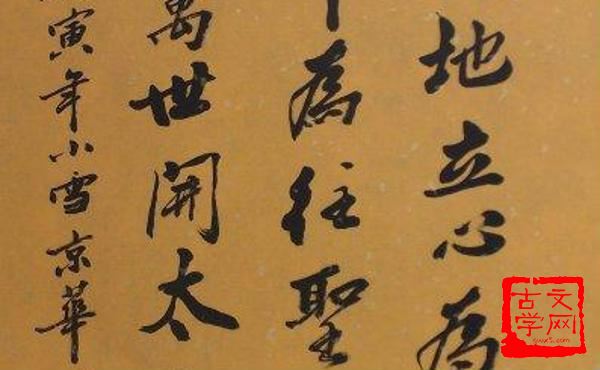 地立心為
為往聖
萬世開太
寅年小雪京華
古文
学网
gwx5.com